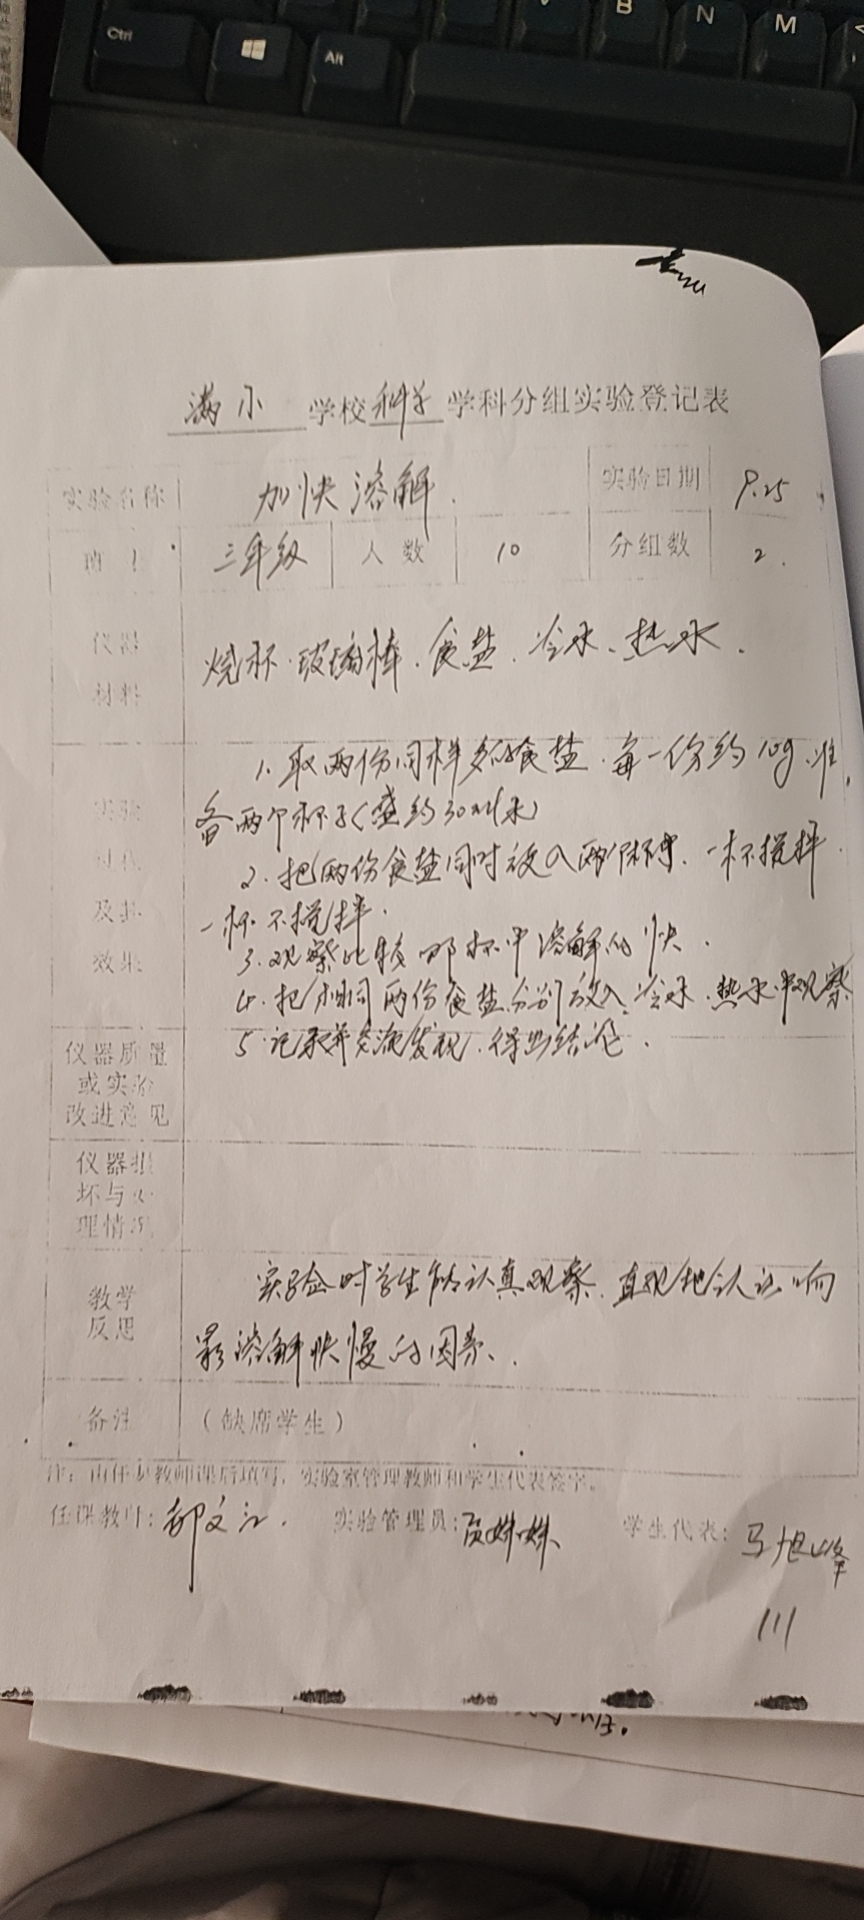 Ctrl
Alt
B
N
M
满小 学校 科学 学科分组实验登记表
实验名称 加快溶解. 实验日期 9.25
班 三年级 人数 10 分组数 2.
仪器
材料
烧杯.玻璃棒.食盐.冷水、热水.
1.取两份同样多的食盐.每一份约10g.准
备两个杯子(盛约30ml水)
2.把两份食盐同时放入两个杯中.一杯搅拌
一杯不搅拌.
3.观察比较哪杯中溶解的快.
4.把相同两份食盐分别放入冷水.热水中观察
5.记录并交流发现.得出结论.
实验
过程
及其
效果
仪器质量
或实验
改进意见
仪器损
坏与处
理情况
教学
反思
实验时学生能认真观察.直观地认识响
影溶解快慢的因素..
备注 (缺席学生)
注:由任课教师课后填写,实验室管理教师和学生代表签字。
任课教师: 郝文江. 实验管理员: 妹妹 学生代表: 马旭峰
111